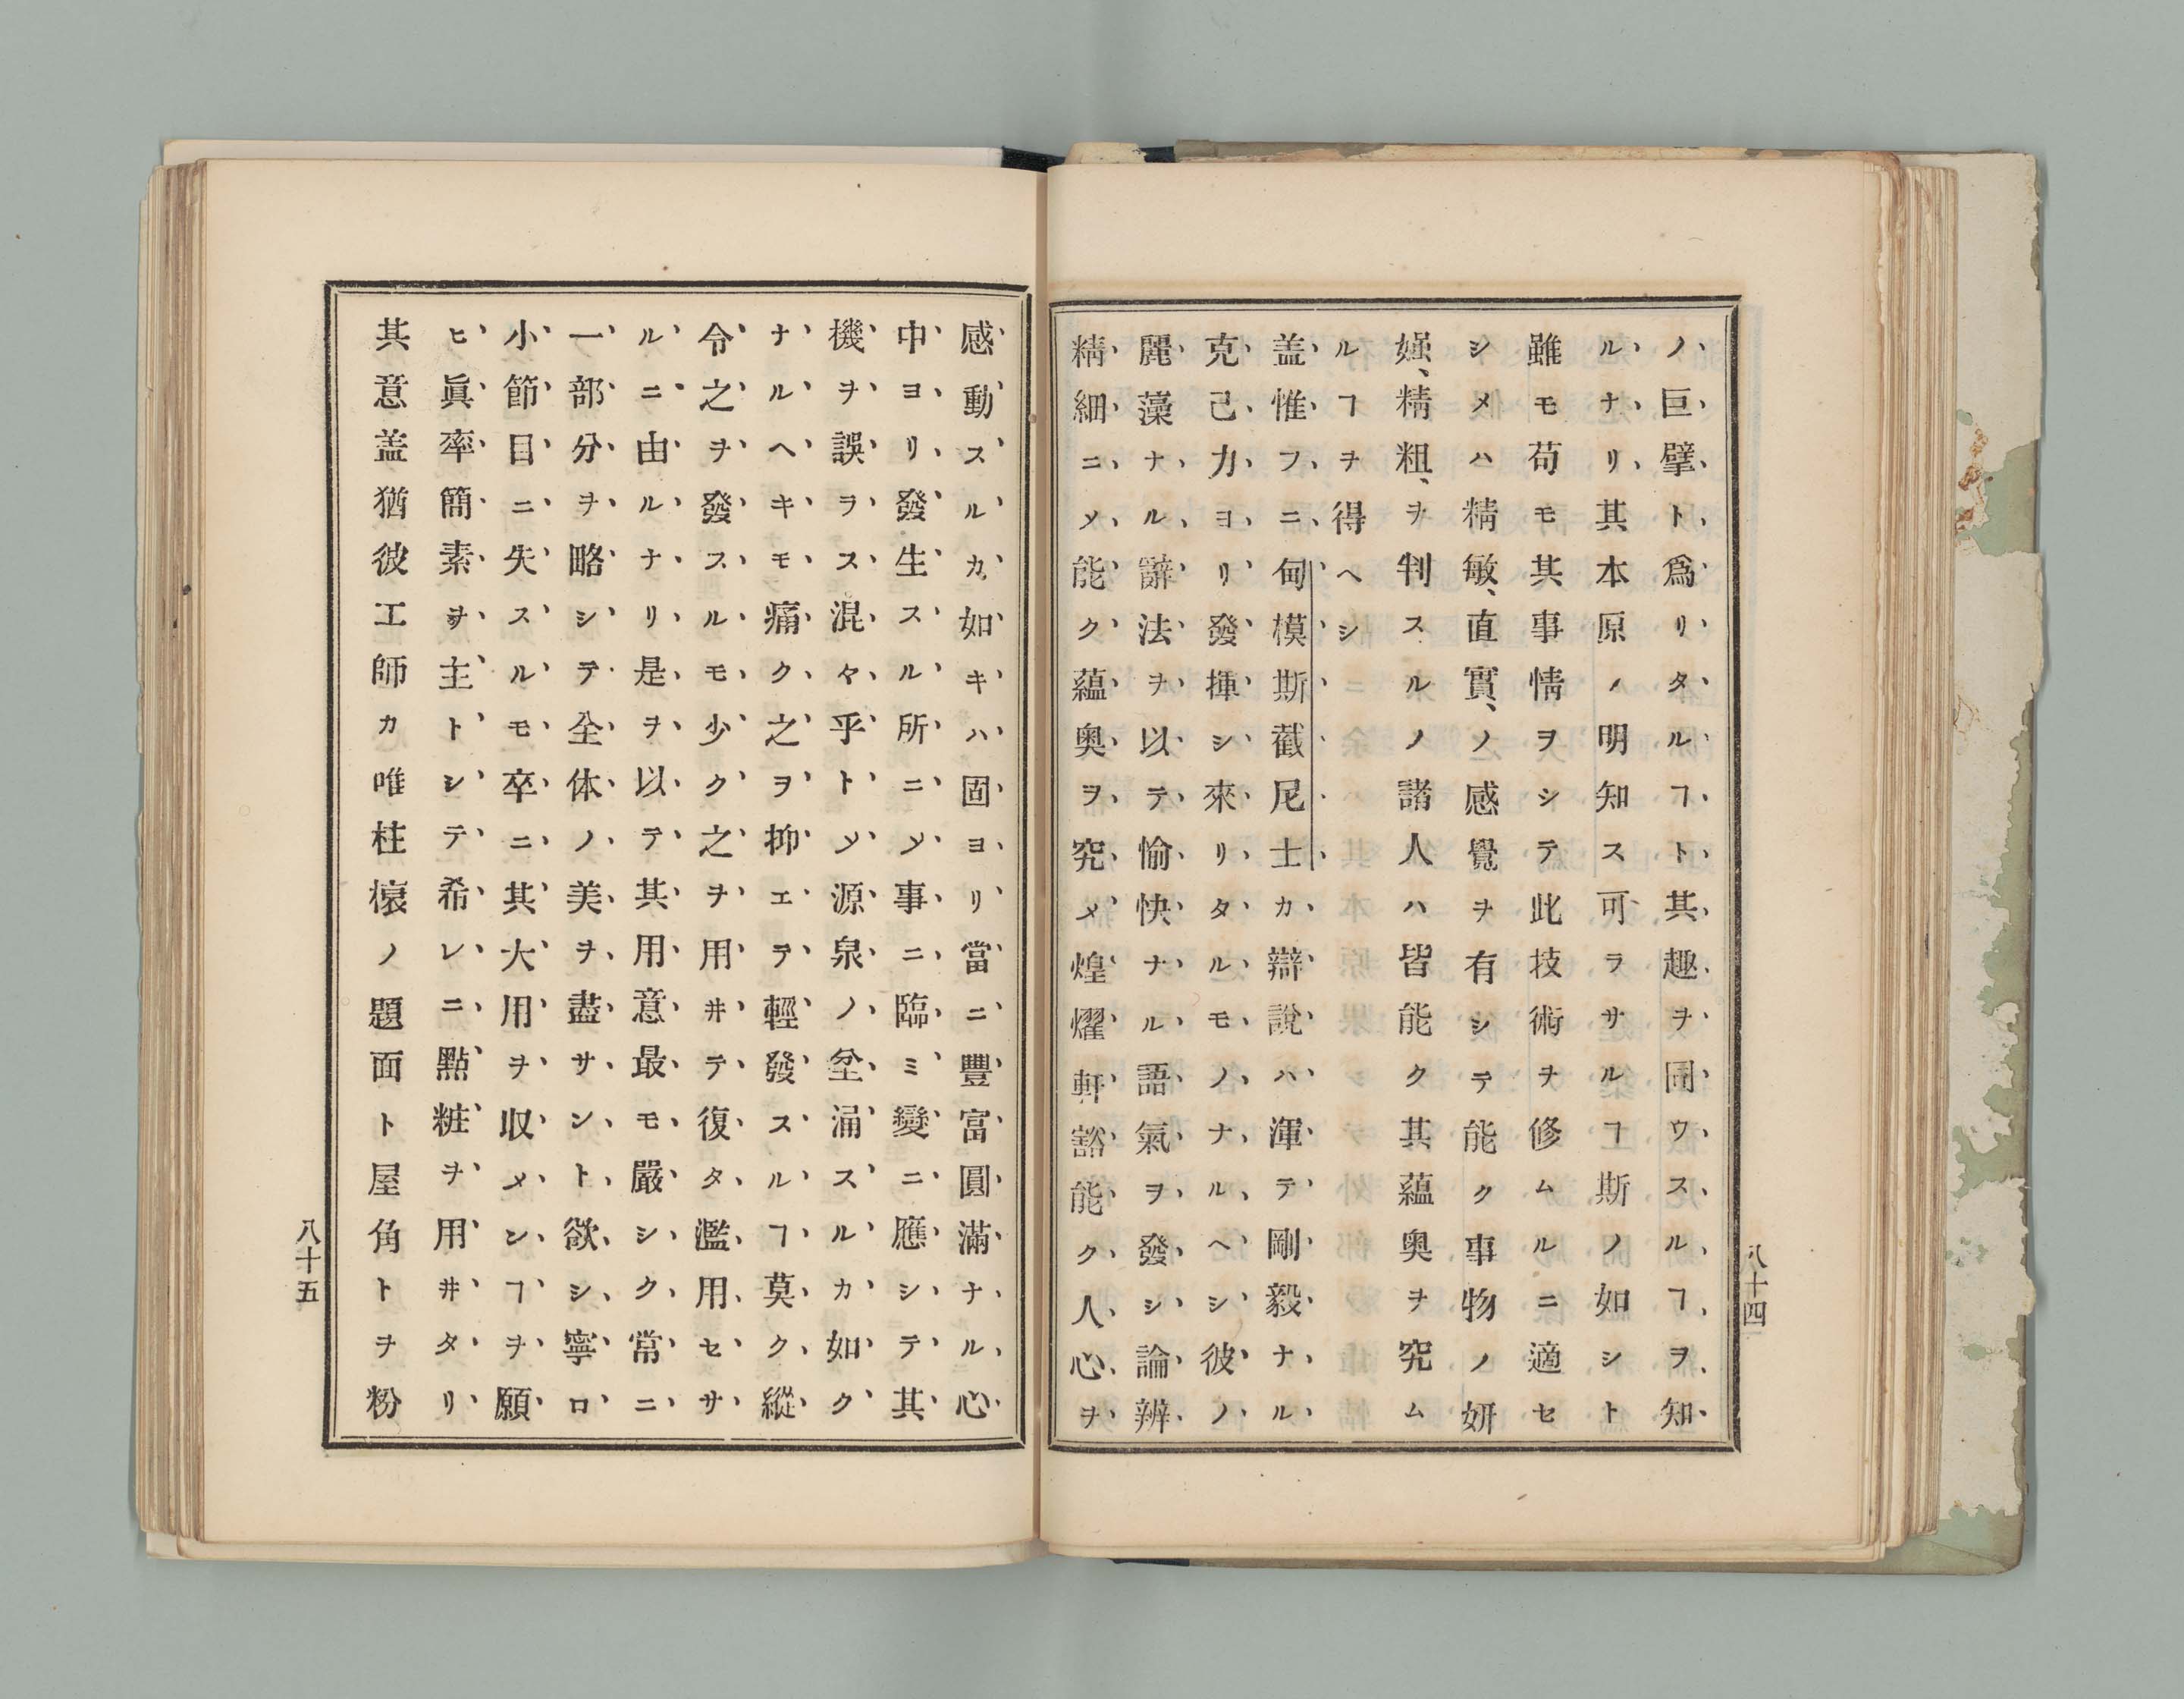 ノ巨擘ト爲リタルヿト其趣ヲ圖ウスルヿヲ知
ルナリ其本原ノ明知ス可ラサルヿ斯ノ如シト
雖モ苟モ其事情ヲシテ此技術ヲ修ムルニ適セ
シメハ精敏、直實、ノ感覺ヲ有シテ能ク事物ノ妍
媸、精粗、ヲ判スルノ諸人ハ皆能ク其蘊奥ヲ究ム
ルヿヲ得ヘシ
盖惟フニ甸模斯截尼士カ辯說ハ渾テ剛毅ナル
克己力ヨリ發揮シ來リタルモノナルヘシ彼ノ
麗藻ナル辭法ヲ以テ愉快ナル語氣ヲ發シ論辨
精細ニメ能ク蘊奥ヲ究メ煌燿軒豁能ク人心ヲ
八十四
感動スルカ如キハ固ヨリ當ニ豐富圓滿ナル心
中ヨリ發生スル所ニメ事ニ臨ミ變ニ應シテ其
機ヲ誤ラス混々乎トメ源泉ノ坌涌スルカ如ク
ナルヘキモ痛ク之ヲ抑エテ輕發スルヿ莫ク縱
令之ヲ發スルモ少ク之ヲ用井テ復タ濫用セサ
ルニ由ルナリ是ヲ以テ其用意最モ嚴シク常ニ
一部分ヲ略シテ全体ノ美ヲ盡サント欲シ寧ロ
小節目ニ失スルモ卒ニ其大用ヲ収メンヿヲ願
ヒ眞率簡素ヲ主トシテ希レニ點粧ヲ用井タリ
其意盖猶彼工師カ唯柱榱ノ題面ト屋角トヲ粉
八十五